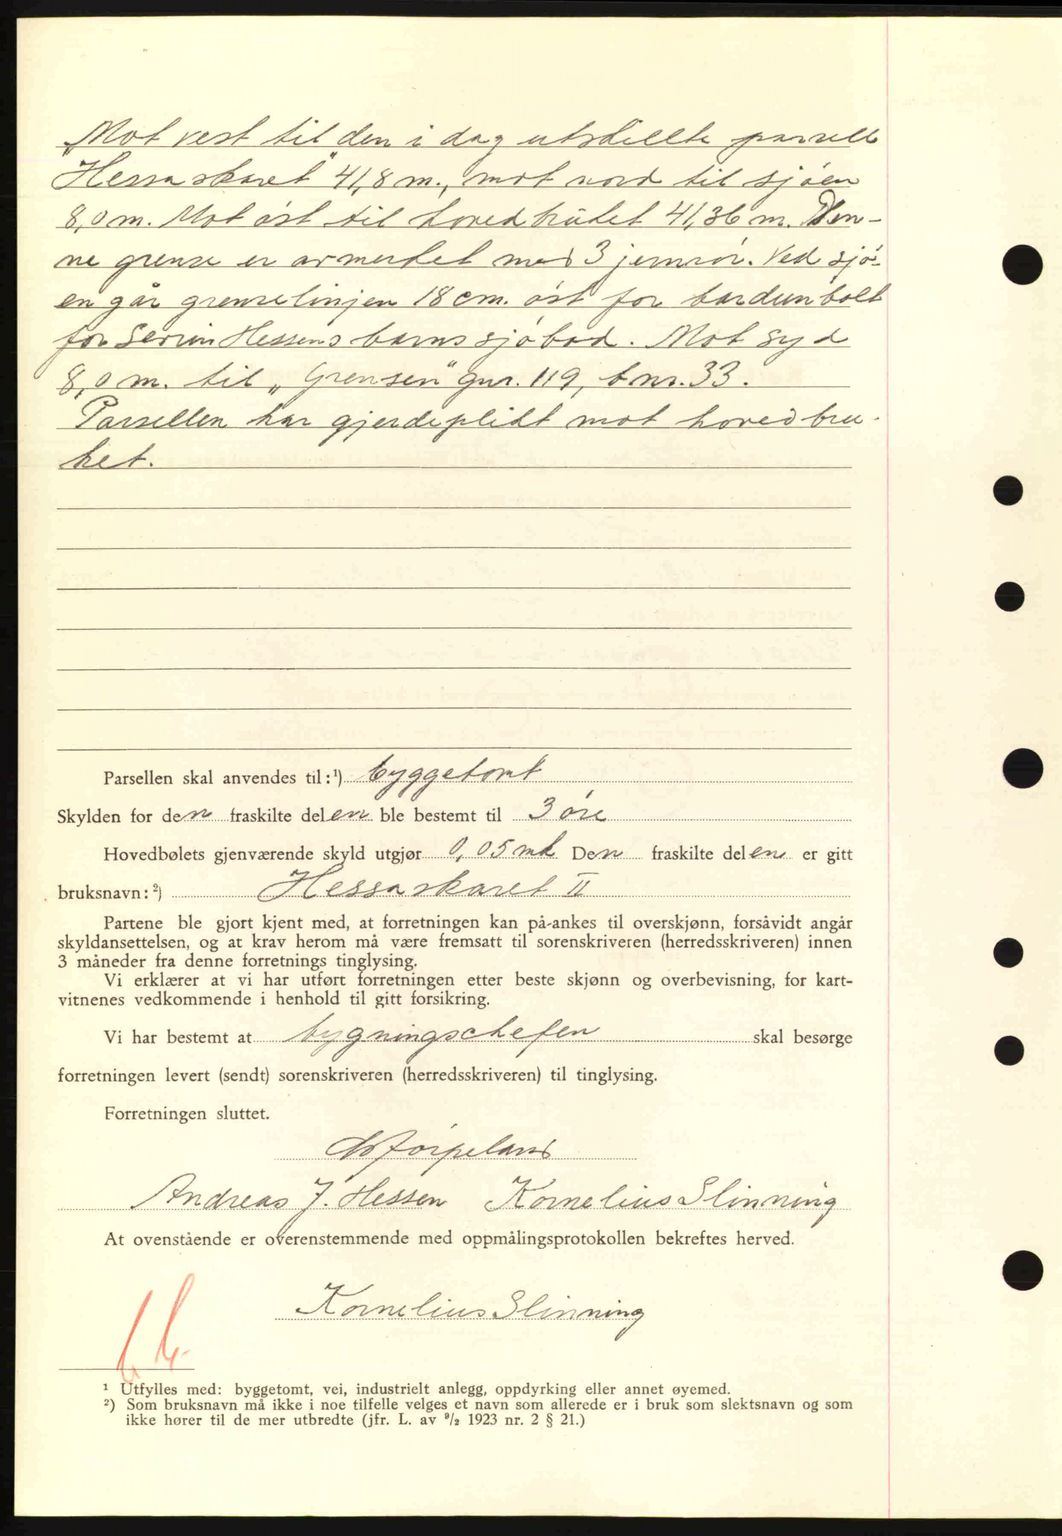 "Mot vest til den i dag utskillte parsell
Hessaskaret" 41,8 m., mot nord til sjöen
8,0 m. Mot öst til hovedbruket 41,36 m. Den-
ne grense er avmerket med 3 jernrör. Ved sjö-
en går grenselinjen 18 cm. öst for bardunbolt
for Severin Hessens barns sjöbod. Mot Syd
8,0 m. til "Grensen" gnr. 119, bnr. 33.
Parsellen har gjerdeplikt mot hovedbru-
ket.
Parsellen skal anvendes til:¹) byggetomt
Skylden for den fraskilte delen ble bestemt til 3 öre
Hovedbølets gjenværende skyld utgjør 0,05 mk Den fraskilte delen er gitt
bruksnavn:²) Hessaskaret II
Partene ble gjort kjent med, at forretningen kan på-ankes til overskjønn, forsåvidt angår
skyldansettelsen, og at krav herom må være fremsatt til sorenskriveren (herredsskriveren) innen
3 måneder fra denne forretnings tinglysing.
Vi erklærer at vi har utført forretningen etter beste skjønn og overbevisning, for kart-
vitnenes vedkommende i henhold til gitt forsikring.
Vi har bestemt at bygningschefen skal besørge
forretningen levert (sendt) sorenskriveren (herredsskriveren) til tinglysing.
Forretningen sluttet.
Andreas J. Hessen Kornelius Slinning
At ovenstående er overenstemmende med oppmålingsprotokollen bekreftes herved.
Kornelius Slinning
¹ Utfylles med: byggetomt, vei, industrielt anlegg, oppdyrking eller annet øyemed.
²) Som bruksnavn må ikke i noe tilfelle velges et navn som allerede er i bruk som slektsnavn og som
ikke hører til de mer utbredte (jfr. L. av ⁹/₂ 1923 nr. 2 § 21.)